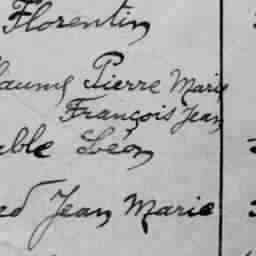 Florentin
laume Pierre Marie
François Jean
able Léon
ed Jean Marie